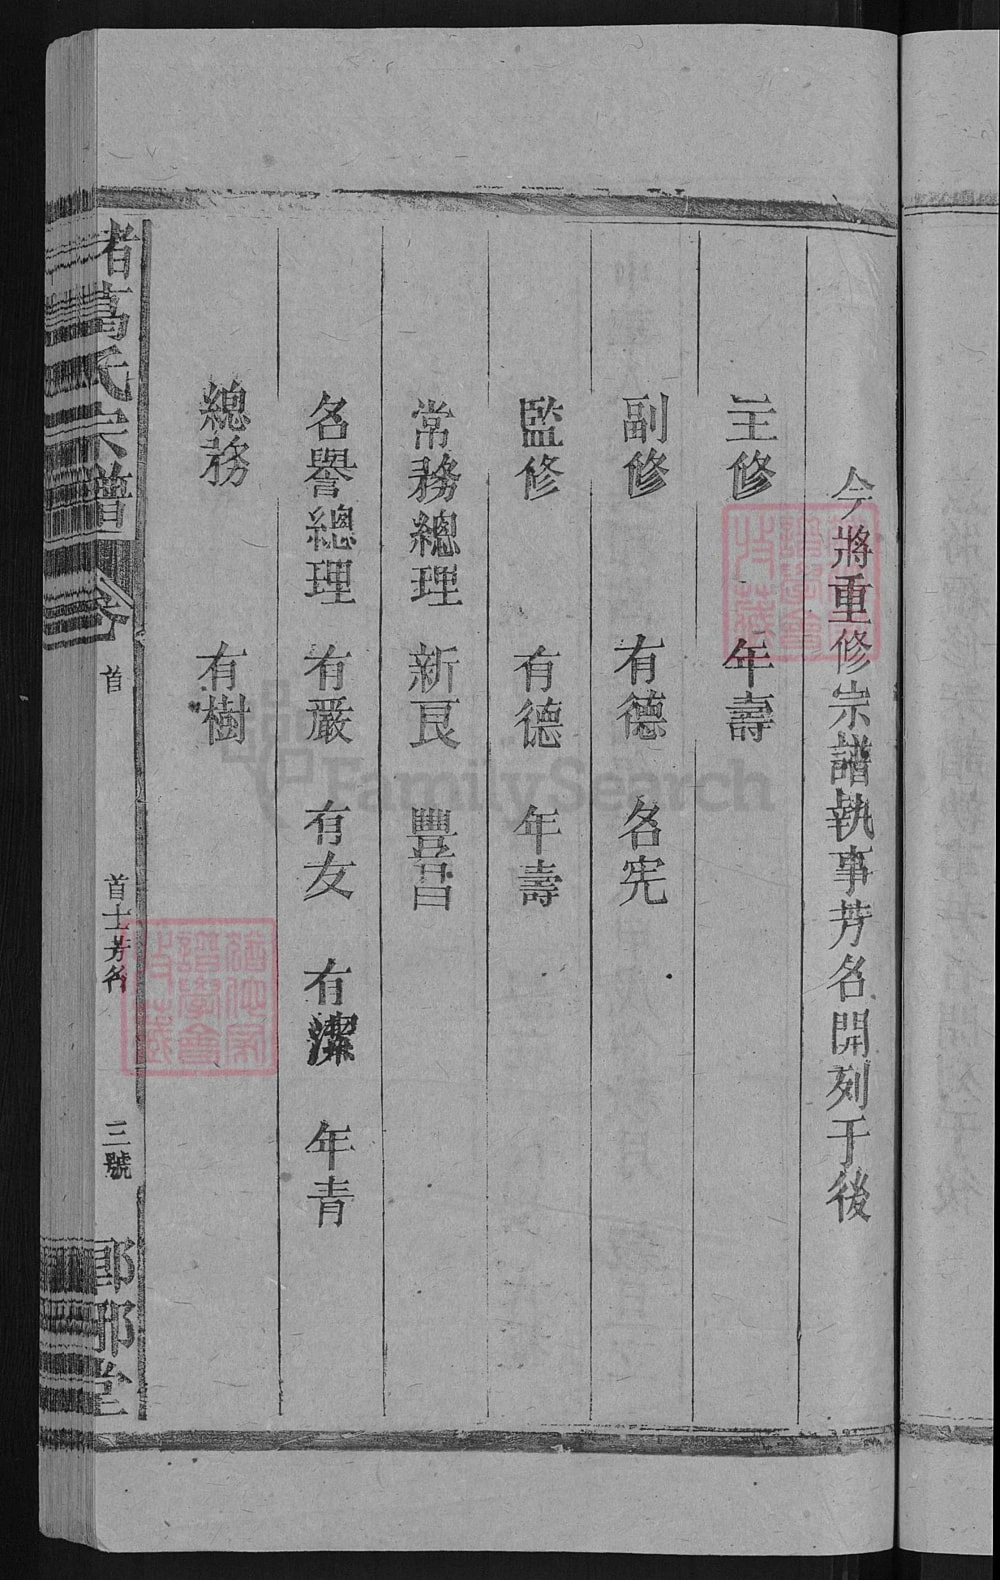 今將重修宗譜執事芳名開列于後
主修 年壽
副修 有德 名宪
監修 有德 年壽
常務總理 新良 豐昌
名譽總理 有嚴 有友 有潔 年青
總務 有樹
葛氏宗譜 卷 首 首士芳名 三號 郎邪堂
FamilySearch